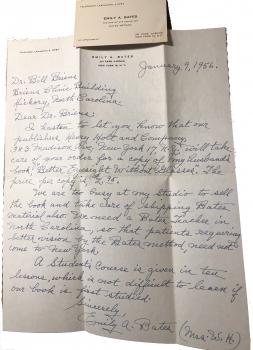 EMILY A. BATES
EMILY A. BATES
NEW YORK 16, N. Y.
January 9, 1956.
Dr. Bill Briens
Briens Clinic Building
Hickory, North Carolina.
Dear Dr. Briens:
I hasten to let you know that our
publisher, Henry Holt and Company,
383 Madison Ave, New York 17, N.Y. will take
care of your order for a copy of my husband's
book "Better Eyesight Without Glasses." The
price per copy is
We are too busy at my Studio to sell
the book and take care of shipping Bates
material also. We need a Bates Teacher in
North Carolina, so that patients requiring
better vision by the Bates method, need not
come to New York.
A Student's Course is given in ten
lessons, which is not difficult to learn if
our book is first studied.
Sincerely,
Emily A. Bates (Mrs. W. H.)